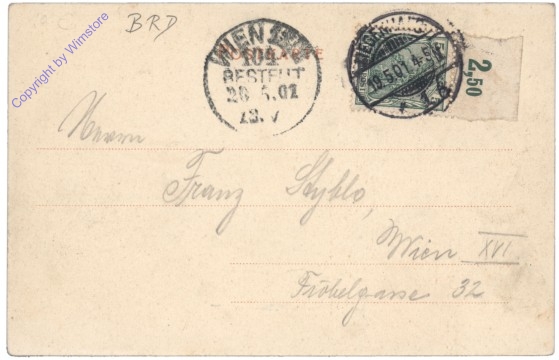 BRD
Copyright by Wimstore
WIEN
104
BESTELLT
2,50
Herrn
Franz Styblo,
Wien XVI
Fröbelgasse 32